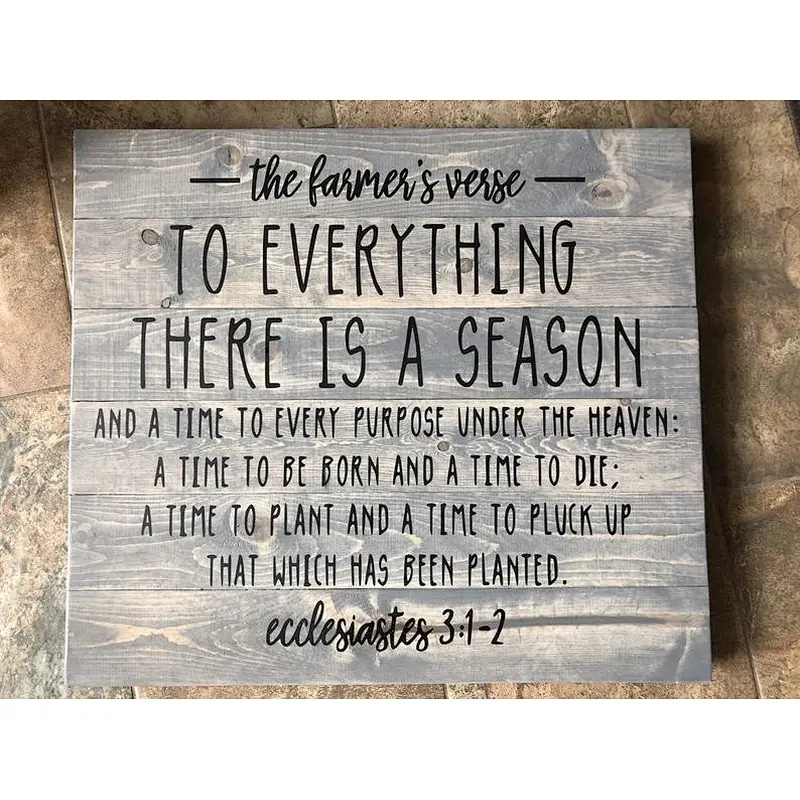 the farmer's verse
TO EVERYTHING
THERE IS A SEASON
AND A TIME TO EVERY PURPOSE UNDER THE HEAVEN:
A TIME TO BE BORN AND A TIME TO DIE;
A TIME TO PLANT AND A TIME TO PLUCK UP
THAT WHICH HAS BEEN PLANTED.
ecclesiastes 3:1-2